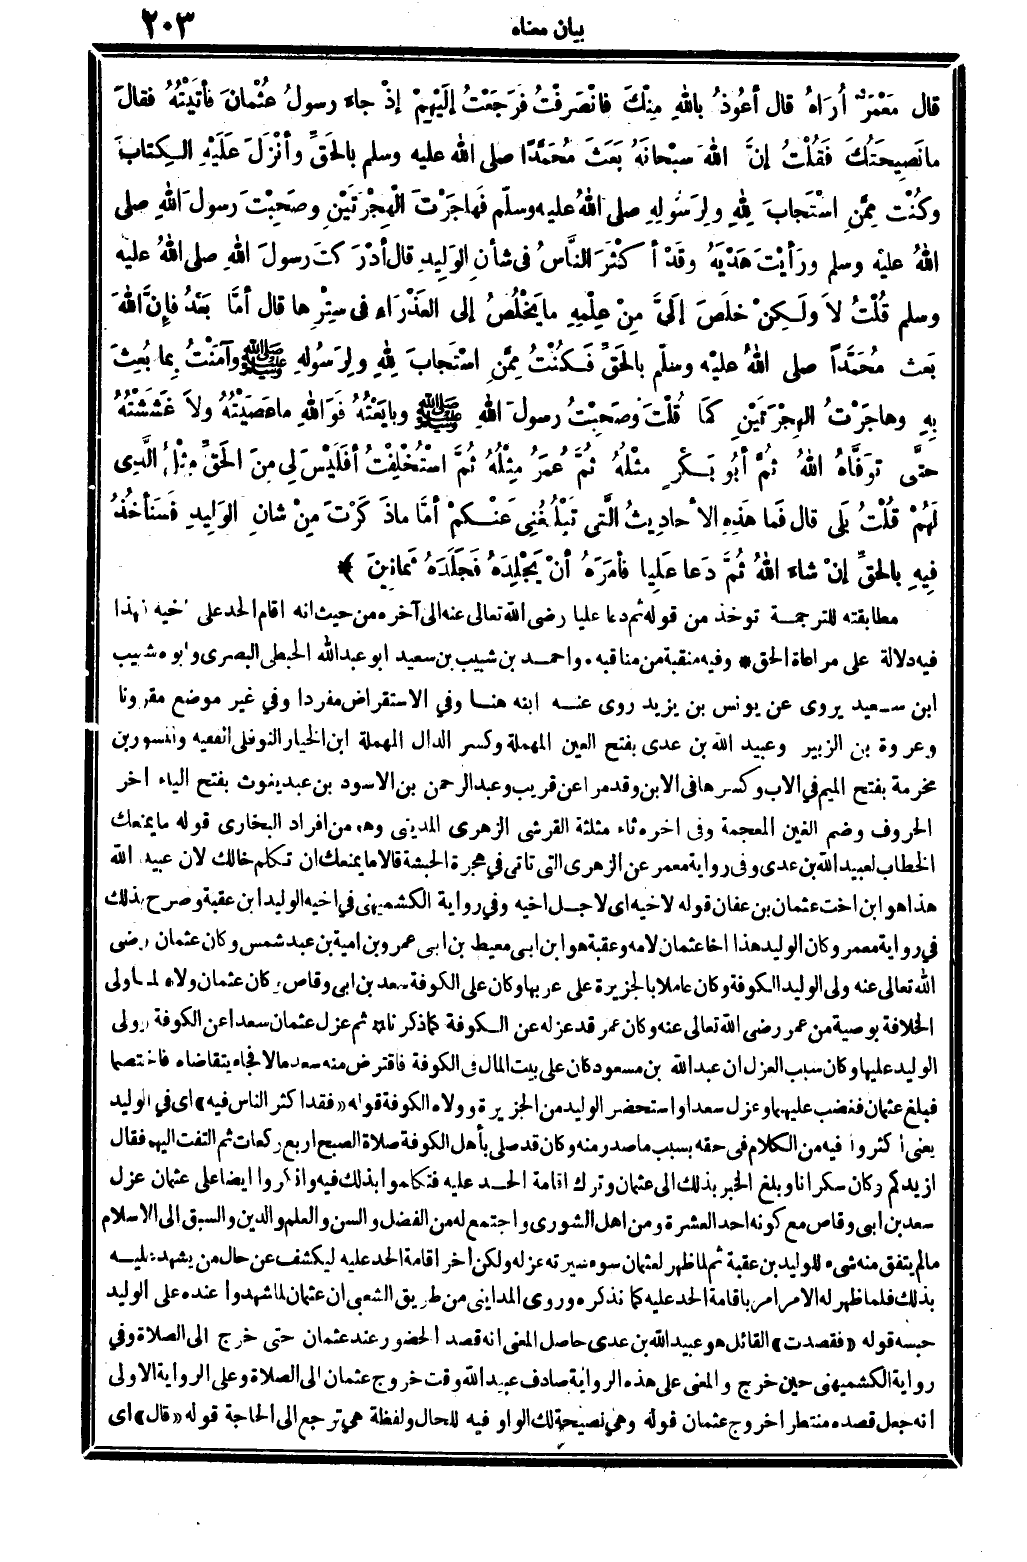 بيان معناه
٢٠٣
قال مَعْمَرٌ أُرَاهُ قال أعُوذُ باللهِ مِنْكَ فانْصَرَفْتُ فَرَجَعْتُ إلَيْهِمْ إذْ جاءَ رسولُ عُثْمانَ فأتَيْتُهُ فقالَ
مانَصِيحَتُكَ فَقُلْتُ إنَّ اللهَ سبْحانَهُ بَعَثَ مُحَمَّدًا صلى الله عليه وسلم بالحَقِّ وأنْزَلَ عَلَيْهِ الكِتابَ
وكُنْتَ مِمَّنِ اسْتَجابَ لِلهِ ولِرَسُولِهِ صلى اللهُ عليه وسلّم فَهاجَرْتَ الْهِجْرَتَيْنِ وصَحِبْتَ رسولَ اللهِ صلى
اللهُ عليْه وسلم ورَأيْتَ هَدْيَهُ وقَدْ أكْثَرَ النَّاسُ فى شأنِ الوَلِيدِ قال أدْرَكتَ رسولَ اللهِ صلى اللهُ عليه
وسلم قُلْتُ لاَ ولَكِنْ خَلَصَ إلَىَّ مِنْ عِلْمِهِ ما يَخْلُصُ إلى العَذْرَاءِ فى سِتْرِها قال أمَّا بَعْدُ فإنَّ اللهَ
بَعَثَ مُحَمَّداً صلى اللهُ عليْه وسلّم بالحَقِّ فَكُنْتُ مِمَّنِ اسْتَجابَ لِلهِ ولِرَسُولِهِ ﷺ وآمَنْتُ بِما بُعِثَ
بِهِ وهاجَرْتُ الهِجْرَتَيْنِ كمَا قُلْتَ وصَحِبْتُ رسولَ اللهِ ﷺ وبايَعْتُهُ فَوَاللهِ ماعَصَيْتُهُ ولاَ غَشَشْتُهُ
حتَّى تَوَفَّاهُ اللهُ ثُمَّ أبُو بَكْرٍ مثْلُهُ ثُمَّ عُمَرُ مِثْلُهُ ثُمَّ اسْتُخْلِفْتُ أفَلَيْسَ لِى مِنَ الحَقِّ مِثْلُ الَّذِى
لَهُمْ قُلْتُ بَلى قال فَما هَذِهِ الأحادِيثُ الَّتِى تَبْلُغُنِى عَنْكمْ أمَّا ماذَكَرْتَ مِنْ شانِ الوَلِيدِ فَسَنَأخُذُ
فِيهِ بالحَقِّ إنْ شاءَ اللهُ ثُمَّ دَعا عَلِيا فأمَرَهُ أنْ يَجْلِدَهُ فَجَلَدَهُ ثَمانِينَ ﴾
مطابقته للترجمة توخذ من قوله ثم دعا عليا رضى الله تعالى عنه الى آخره من حيث انه اقام الحد على اخيه فهذا
فيه دلالة على مراعاة الحق * وفيه منقبة من مناقبه. واحمد بن شبيب بن سعيد ابو عبد الله الحبطى البصرى وابوه شبيب
ابن سعيد يروى عن يونس بن يزيد روى عنه ابنه هنا وفي الاستقراض مفردا وفي غير موضع مقرونا
وعروة بن الزبير وعبيد الله بن عدى بفتح العين المهملة وكسر الدال المهملة ابن الخيار النوفلى الفقيه والمسور بن
مخرمة بفتح الميم في الاب وكسرها فى الابن وقد مرا عن قريب وعبد الرحمن بن الاسود بن عبد يغوث بفتح الياء اخر
الحروف وضم الغين المعجمة وفى اخره ثاء مثلثة القرشي الزهرى المدينى وهو من افراد البخارى قوله ما يمنعك
الخطاب لعبيد الله بن عدى وفى رواية معمر عن الزهرى التى تاتى في هجرة الحبشة قالا ما يمنعك ان تكلم خالك لان عبيد الله
هذا هو ابن اخت عثمان بن عفان قوله لاخيه اى لاجل اخيه وفي رواية الكشميهنى في اخيه الوليد ابن عقبة وصرح بذلك
في رواية معمر وكان الوليد هذا اخا عثمان لامه وعقبة هو ابن ابى معيط بن ابى عمرو بن امية بن عبد شمس وكان عثمان رضى
الله تعالى عنه ولى الوليد الكوفة وكان عاملا بالجزيرة على عربها وكان على الكوفة سعد بن ابى وقاص وكان عثمان ولاه لما ولى
الخلافة بوصية من عمر رضى الله تعالى عنه وكان عمر قد عزله عن الكوفة كما ذكرناه ثم عزل عثمان سعدا عن الكوفة وولى
الوليد عليها وكان سبب العزل ان عبد الله بن مسعود كان على بيت المال فى الكوفة فاقترض منه سعد مالا فجاء يتقاضاه فاختصما
فبلغ عثمان فغضب عليهما وعزل سعدا واستحضر الوليد من الجزيرة وولاه الكوفة قوله «فقد اكثر الناس فيه» اى في الوليد
يعنى اكثروا فيه من الكلام فى حقه بسبب ما صدر منه وكان قد صلى بأهل الكوفة صلاة الصبح اربع ركعات ثم التفت اليهم فقال
ازيدكم وكان سكرانا وبلغ الخبر بذلك الى عثمان وترك اقامة الحد عليه فتكلموا بذلك فيه وانكروا ايضا على عثمان عزل
سعد بن ابى وقاص مع كونه احد العشرة ومن اهل الشورى واجتمع له من الفضل والسن والعلم والدين والسبق الى الاسلام
مالم يتفق منه شىء للوليد بن عقبة ثم لما ظهر لعثمان سوء سيرته عزله ولكن أخر اقامة الحد عليه ليكشف عن حال من يشهد عليه
بذلك فلما ظهر له الامر امر باقامة الحد عليه كما نذكره وروى المداينى من طريق الشعبى ان عثمان لما شهدوا عنده على الوليد
حبسه قوله «فقصدت» القائل هو عبيد الله بن عدى حاصل المعنى انه قصد الحضور عند عثمان حتى خرج الى الصلاة وفي
رواية الكشميهنى حين خرج والمعنى على هذه الرواية صادف عبيد الله وقت خروج عثمان الى الصلاة وعلى الرواية الاولى
انه جعل قصده منتظرا خروج عثمان قوله وهي نصيحة لك الواو فيه للحال ولفظة هي ترجع الى الحاجة قوله «قال» اى